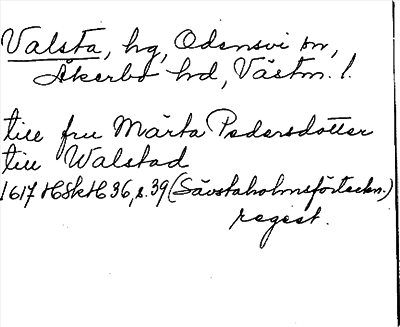 Valsta, hg, Odensvi sn,
Åkerbo hd, Västm. l.
till fru Märta Pedersdotter
till Walstad
1617 HSkH 36, s. 39 (Sävstaholmsförteckn.)
regest.